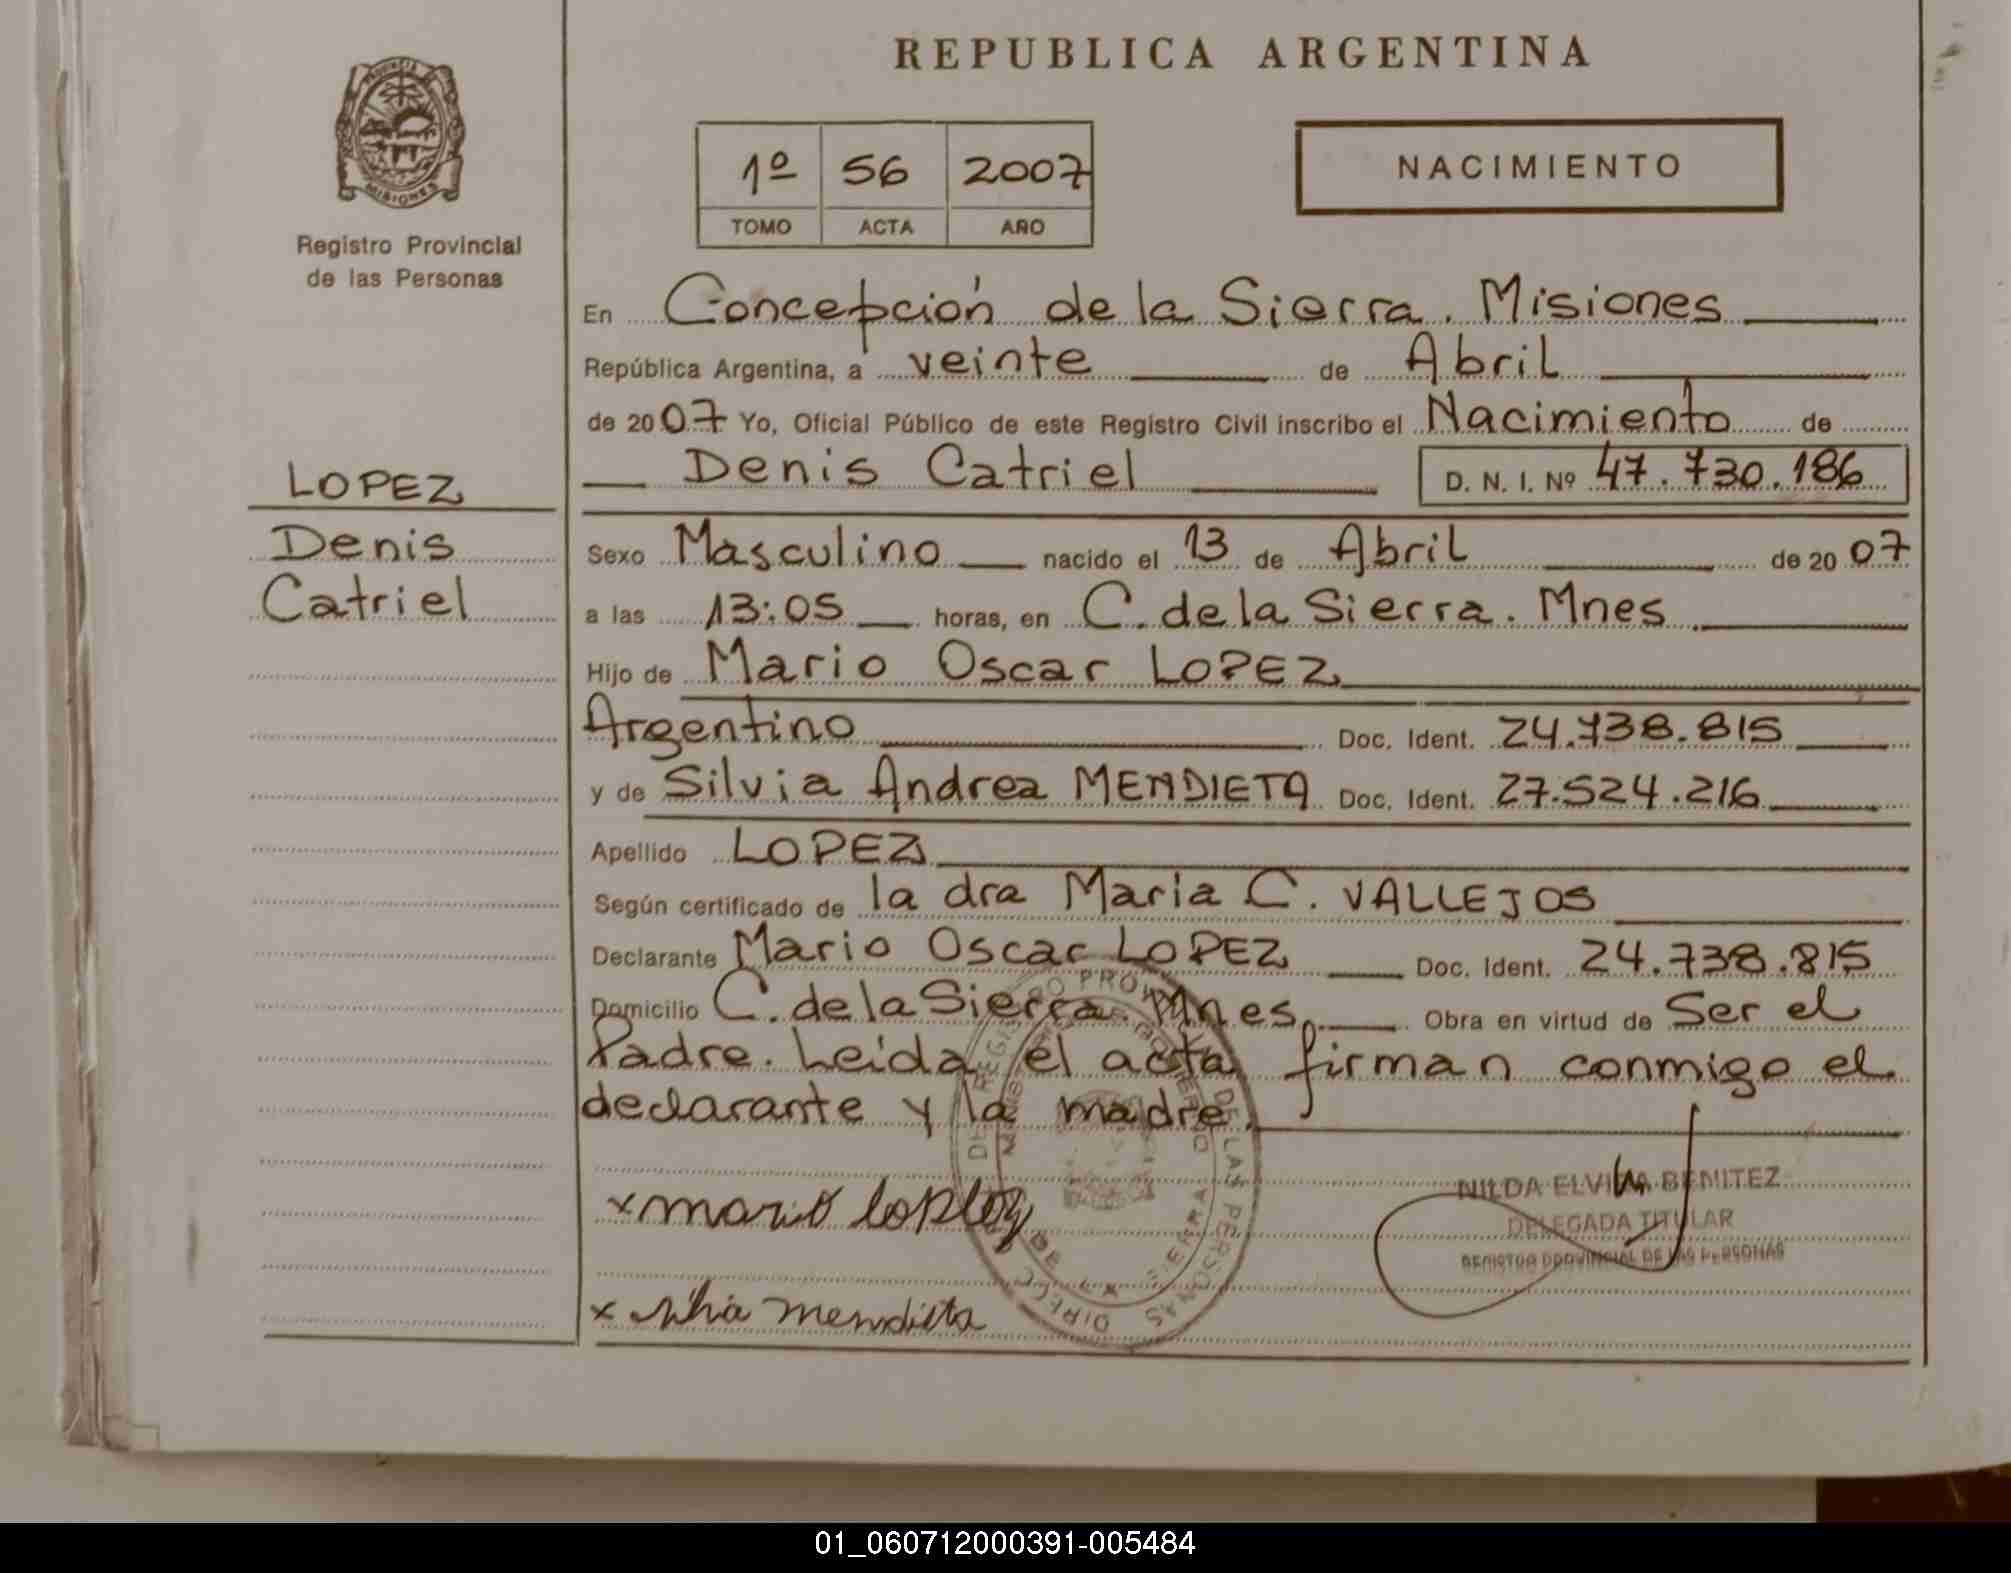 REPUBLICA ARGENTINA
PROVINCIA DE
MISIONES
Registro Provincial
de las Personas
1º 56 2007
TOMO ACTA AÑO
NACIMIENTO
En Concepción de la Sierra. Misiones
República Argentina, a veinte de Abril
de 2007 Yo, Oficial Público de este Registro Civil inscribo el Nacimiento de
Denis Catriel D. N. I. Nº 47.730.186
LOPEZ
Denis
Catriel
Sexo Masculino nacido el 13 de Abril de 2007
a las 13:05 horas, en C. de la Sierra. Mnes.
Hijo de Mario Oscar LOPEZ
Argentino Doc. Ident. 24.738.815
y de Silvia Andrea MENDIETA Doc. Ident. 27.524.216
Apellido LOPEZ
Según certificado de la dra Maria C. VALLEJOS
Declarante Mario Oscar LOPEZ Doc. Ident. 24.738.815
Domicilio C. de la Sierra. Mnes. Obra en virtud de Ser el
Padre. Leída el acta firman conmigo el
declarante y la madre.
x mario lopez
x silvia mendieta
NILDA ELVIRA BENITEZ
DELEGADA TITULAR
REGISTRO PROVINCIAL DE LAS PERSONAS
DE LAS PERSONAS
DE LA SIERRA
01_060712000391-005484